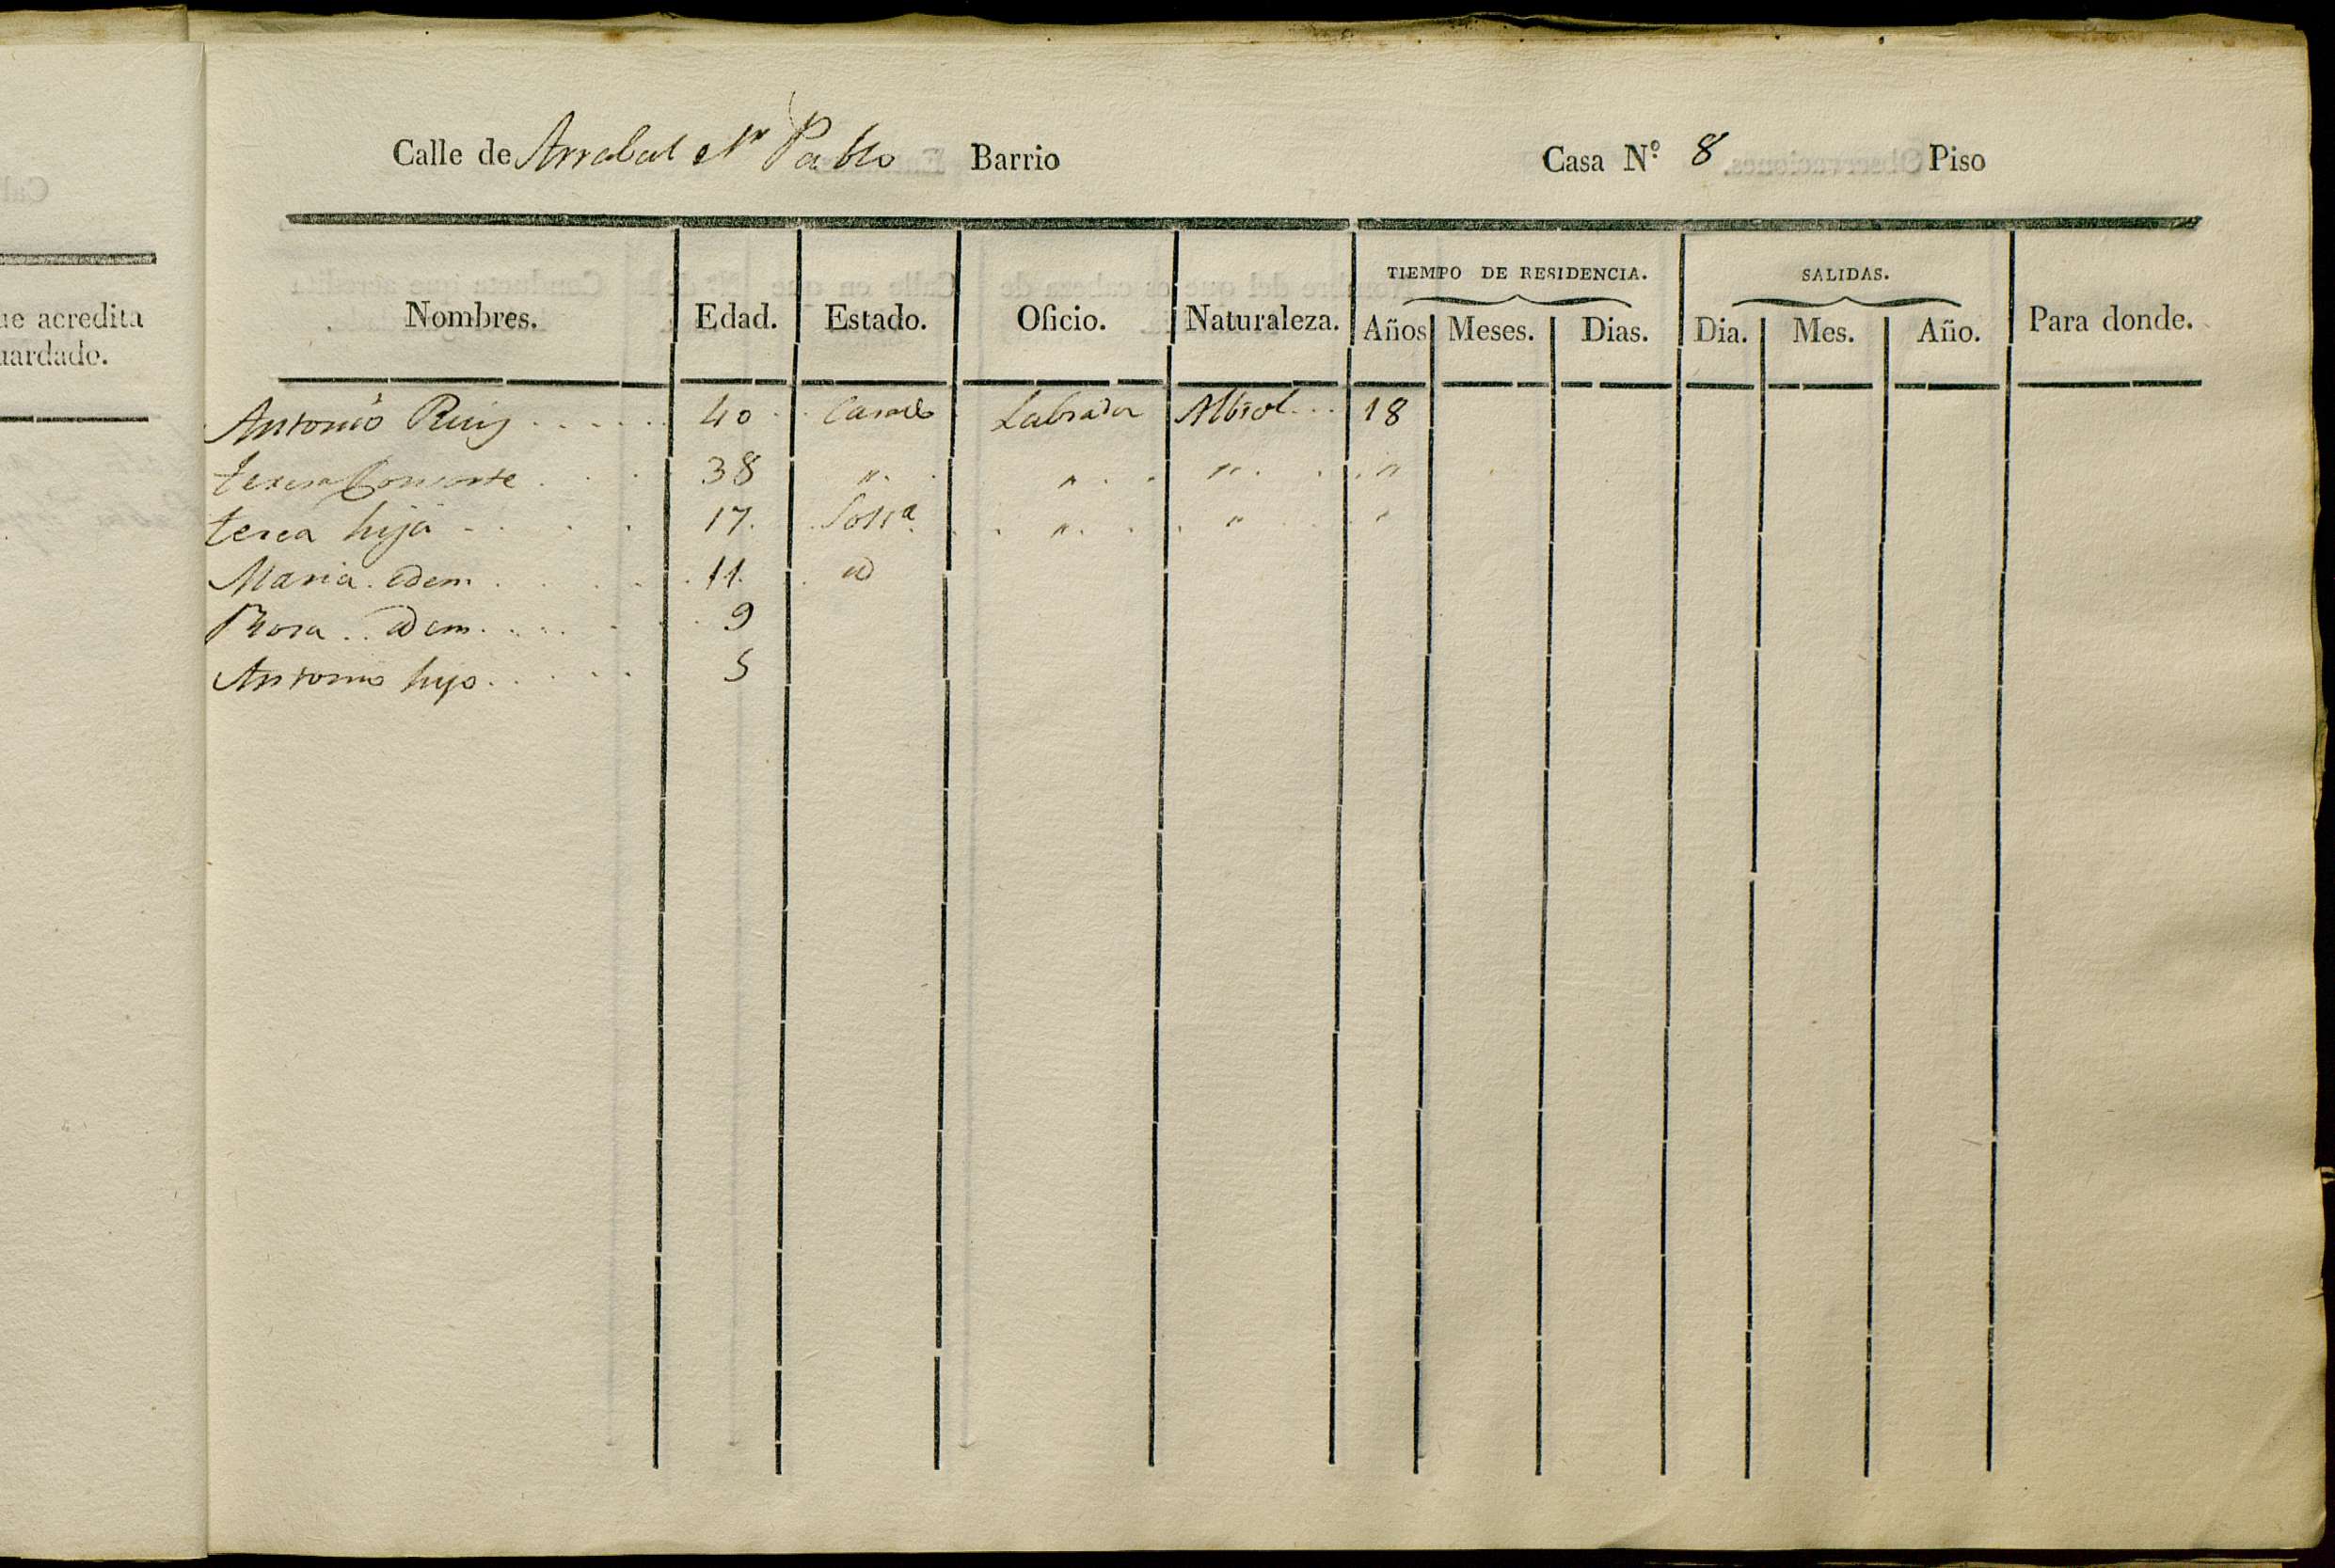 Calle de Arrabal Sn Pablo Barrio Casa Nº 8 Piso
ue acredita
uardado.
TIEMPO DE RESIDENCIA. SALIDAS.
Nombres. Edad. Estado. Oficio. Naturaleza. Años Meses. Dias. Dia. Mes. Año. Para donde.
Antonio Ruiz 40 Casado Labrador Albiol 18
teresa Consorte 38 " " " "
teresa hija 17 Solra " " "
Maria idem 11 id
Rosa idem 9
Antonio hijo 5